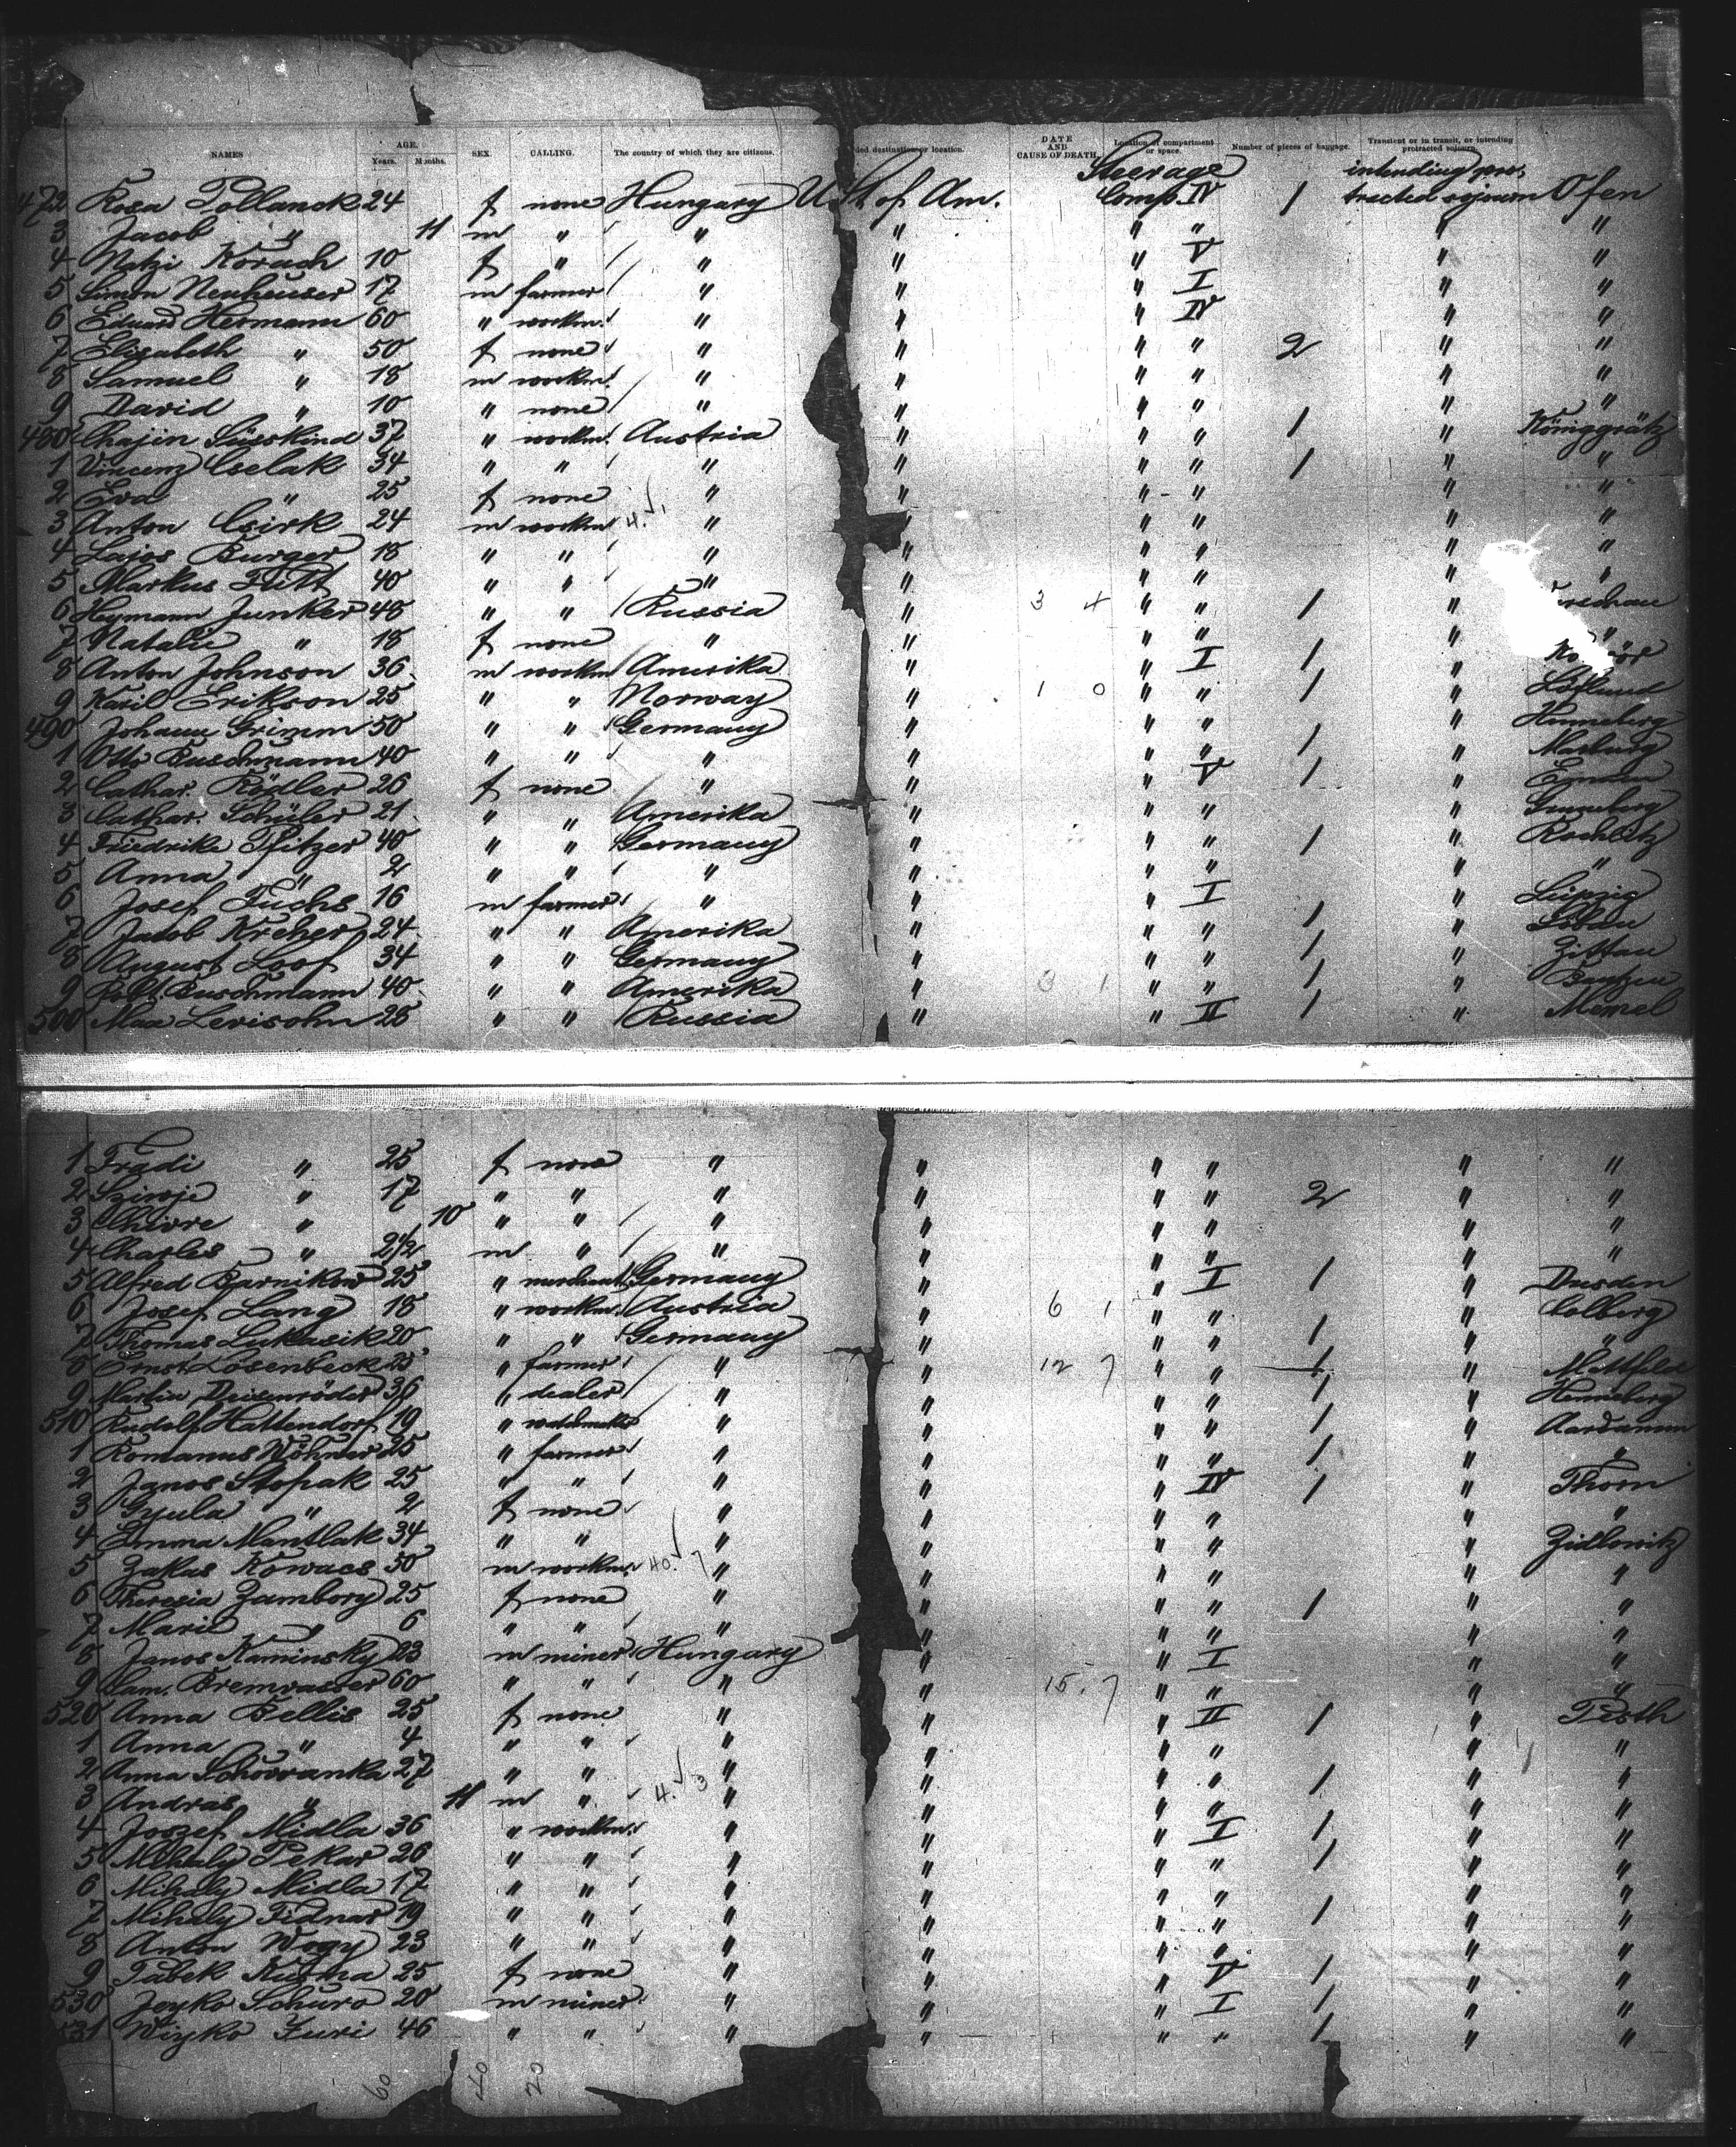 NAMES AGE. Years. Months. SEX. CALLING. The country of which they are citizens. ded destination or location. DATE AND CAUSE OF DEATH. Location of compartment or space. Number of pieces of baggage. Transient or in transit, or intending protracted sojourn.
Steerage intending pro-
472 Rosa Pollanck 24 f none Hungary U. St. of Am. Comp. IV 1 tracted sojourn Ofen
3 Jacob " 11 m " " " " " " "
4 Netzi Korach 10 f " " " " V " "
5 Simon Neuhauser 17 m farmer " " " I " "
6 Eduard Hermann 60 " workm. " " " IV " "
7 Elisabeth " 50 f none " " " " 2 " "
8 Samuel " 18 m workm. " " " " " "
9 David " 10 " none " " " " " "
480 Chajin Süsskind 37 " workm. Austria " " " 1 " Königgrätz
1 Vincenz Cselak 34 " " " " " " 1 " "
2 Eva " 25 f none " " " " " "
3 Anton Csirk 24 m workm 4. 1 " " " " " "
4 Lajos Burger 18 " " " " " " " "
5 Markus Fitt 40 " " " " " " " "
6 Heymann Junker 48 " " Russia " 3 4 " " 1 "
7 Natalie " 18 f none " " " " " "
8 Anton Johnson 36 m workm Amerika " " I 1 "
9 Karil Erikson 25 " " Norway " 1 0 " " 1 "
490 Johann Grimm 50 " " Germany " " " " Henneberg
1 Otto Buschmann 40 " " " " " " 1 " Marburg
2 Cathar. Rödler 26 f none " " " V 1 "
3 Cathar. Schüler 21 " " Amerika " " " "
4 Friedrike Pfitzer 40 " " Germany " " " 1 " Rochlitz
5 Anna " 2 " " " " " " " "
6 Josef Fuchs 16 m farmer " " " I " Leipzig
7 Jacob Kreher 24 " " Amerika " " " 1 " Löbau
8 August Loof 34 " " Germany " " " 1 " Zittau
9 Robt. Buschmann 40 " " Amerika " 3 1 " " 1 " Bautzen
500 Max Levisohn 28 " " Russia " " II 1 " Memel
1 Fradi " 25 f none " " " " " "
2 Sziwje " 17 " " " " " " 2 " "
3 " 10 " " " " " " " "
4 Charles " 2 1/2 m " " " " " " "
5 Alfred Barnikow 25 " merchant Germany " " I 1 " Dresden
6 Josef Lang 18 " workm. Austria " 6 1 " " 1 " Colberg
7 Thomas Lukasik 20 " " Germany " " " 1 " "
8 Ernst Lösenbeck 25 " farmer " " 12 7 " " 1 "
9 Martin Deisenröder 36 " dealer " " " " 1 " Henneberg
510 Rudolf Hattendorf 19 " " " " " 1 "
1 Romanus Wöhner 25 " farmer " " " " 1 " "
2 Janos Stopak 25 " " " " " IV 1 " Thorn
3 Gyula " 2 f none " " " " " "
4 Emma Mantlak 34 " " " " " " " Zidlowitz
5 Zakas Kowacs 50 m workm. 40. 7 " " " " " "
6 Theresia Zambory 25 f none " " " " 1 " "
7 Marie " 6 " " " " " " " "
8 Janos Kaminsky 23 m miner Hungary " " I " "
9 Sam. Bremwasser 60 " " " " 15. 7 " " " "
520 Anna Bellis 25 f none " " " II 1 " Pesth
1 Anna " 4 " " " " " " " "
2 Anna 27 " " " " " " 1 " "
3 Andras " 11 m " 4. 3 " " " " " "
4 Joszef Midla 36 " workm. " " " I 1 " "
5 Mihaly Pekar 26 " " " " " " 1 " "
6 Mihaly Midla 17 " " " " " " " "
7 Mihaly Fidnar 19 " " " " " " 1 " "
8 Anton Wogy 23 " " " " " " " "
9 Tabek Kusma 25 f none " " " V 1 " "
530 Jeyko Schuro 20 m miner " " " I 1 " "
531 Wizko Juri 46 " " " " " " 1 " "
60 40 20